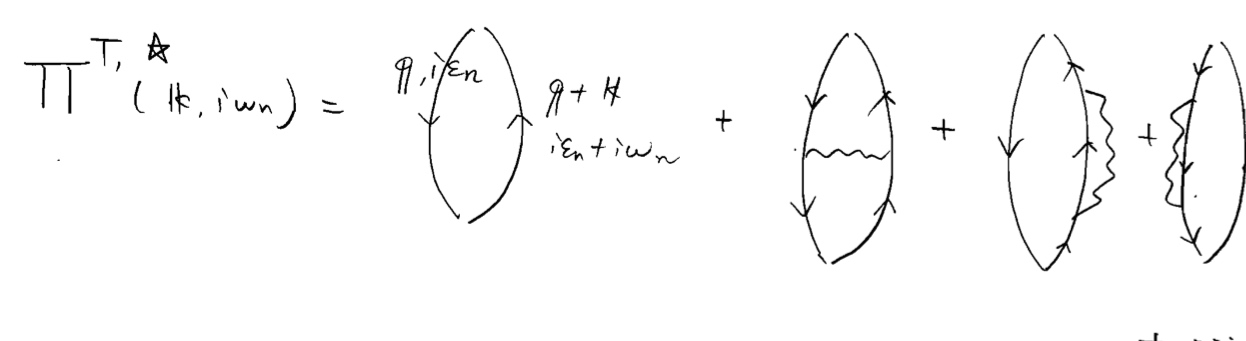 Π^{T, ☆} (𝕜, iωn) = 𝕢, iεn 𝕢 + 𝕜 + + +
iεn + iωn
+ ...